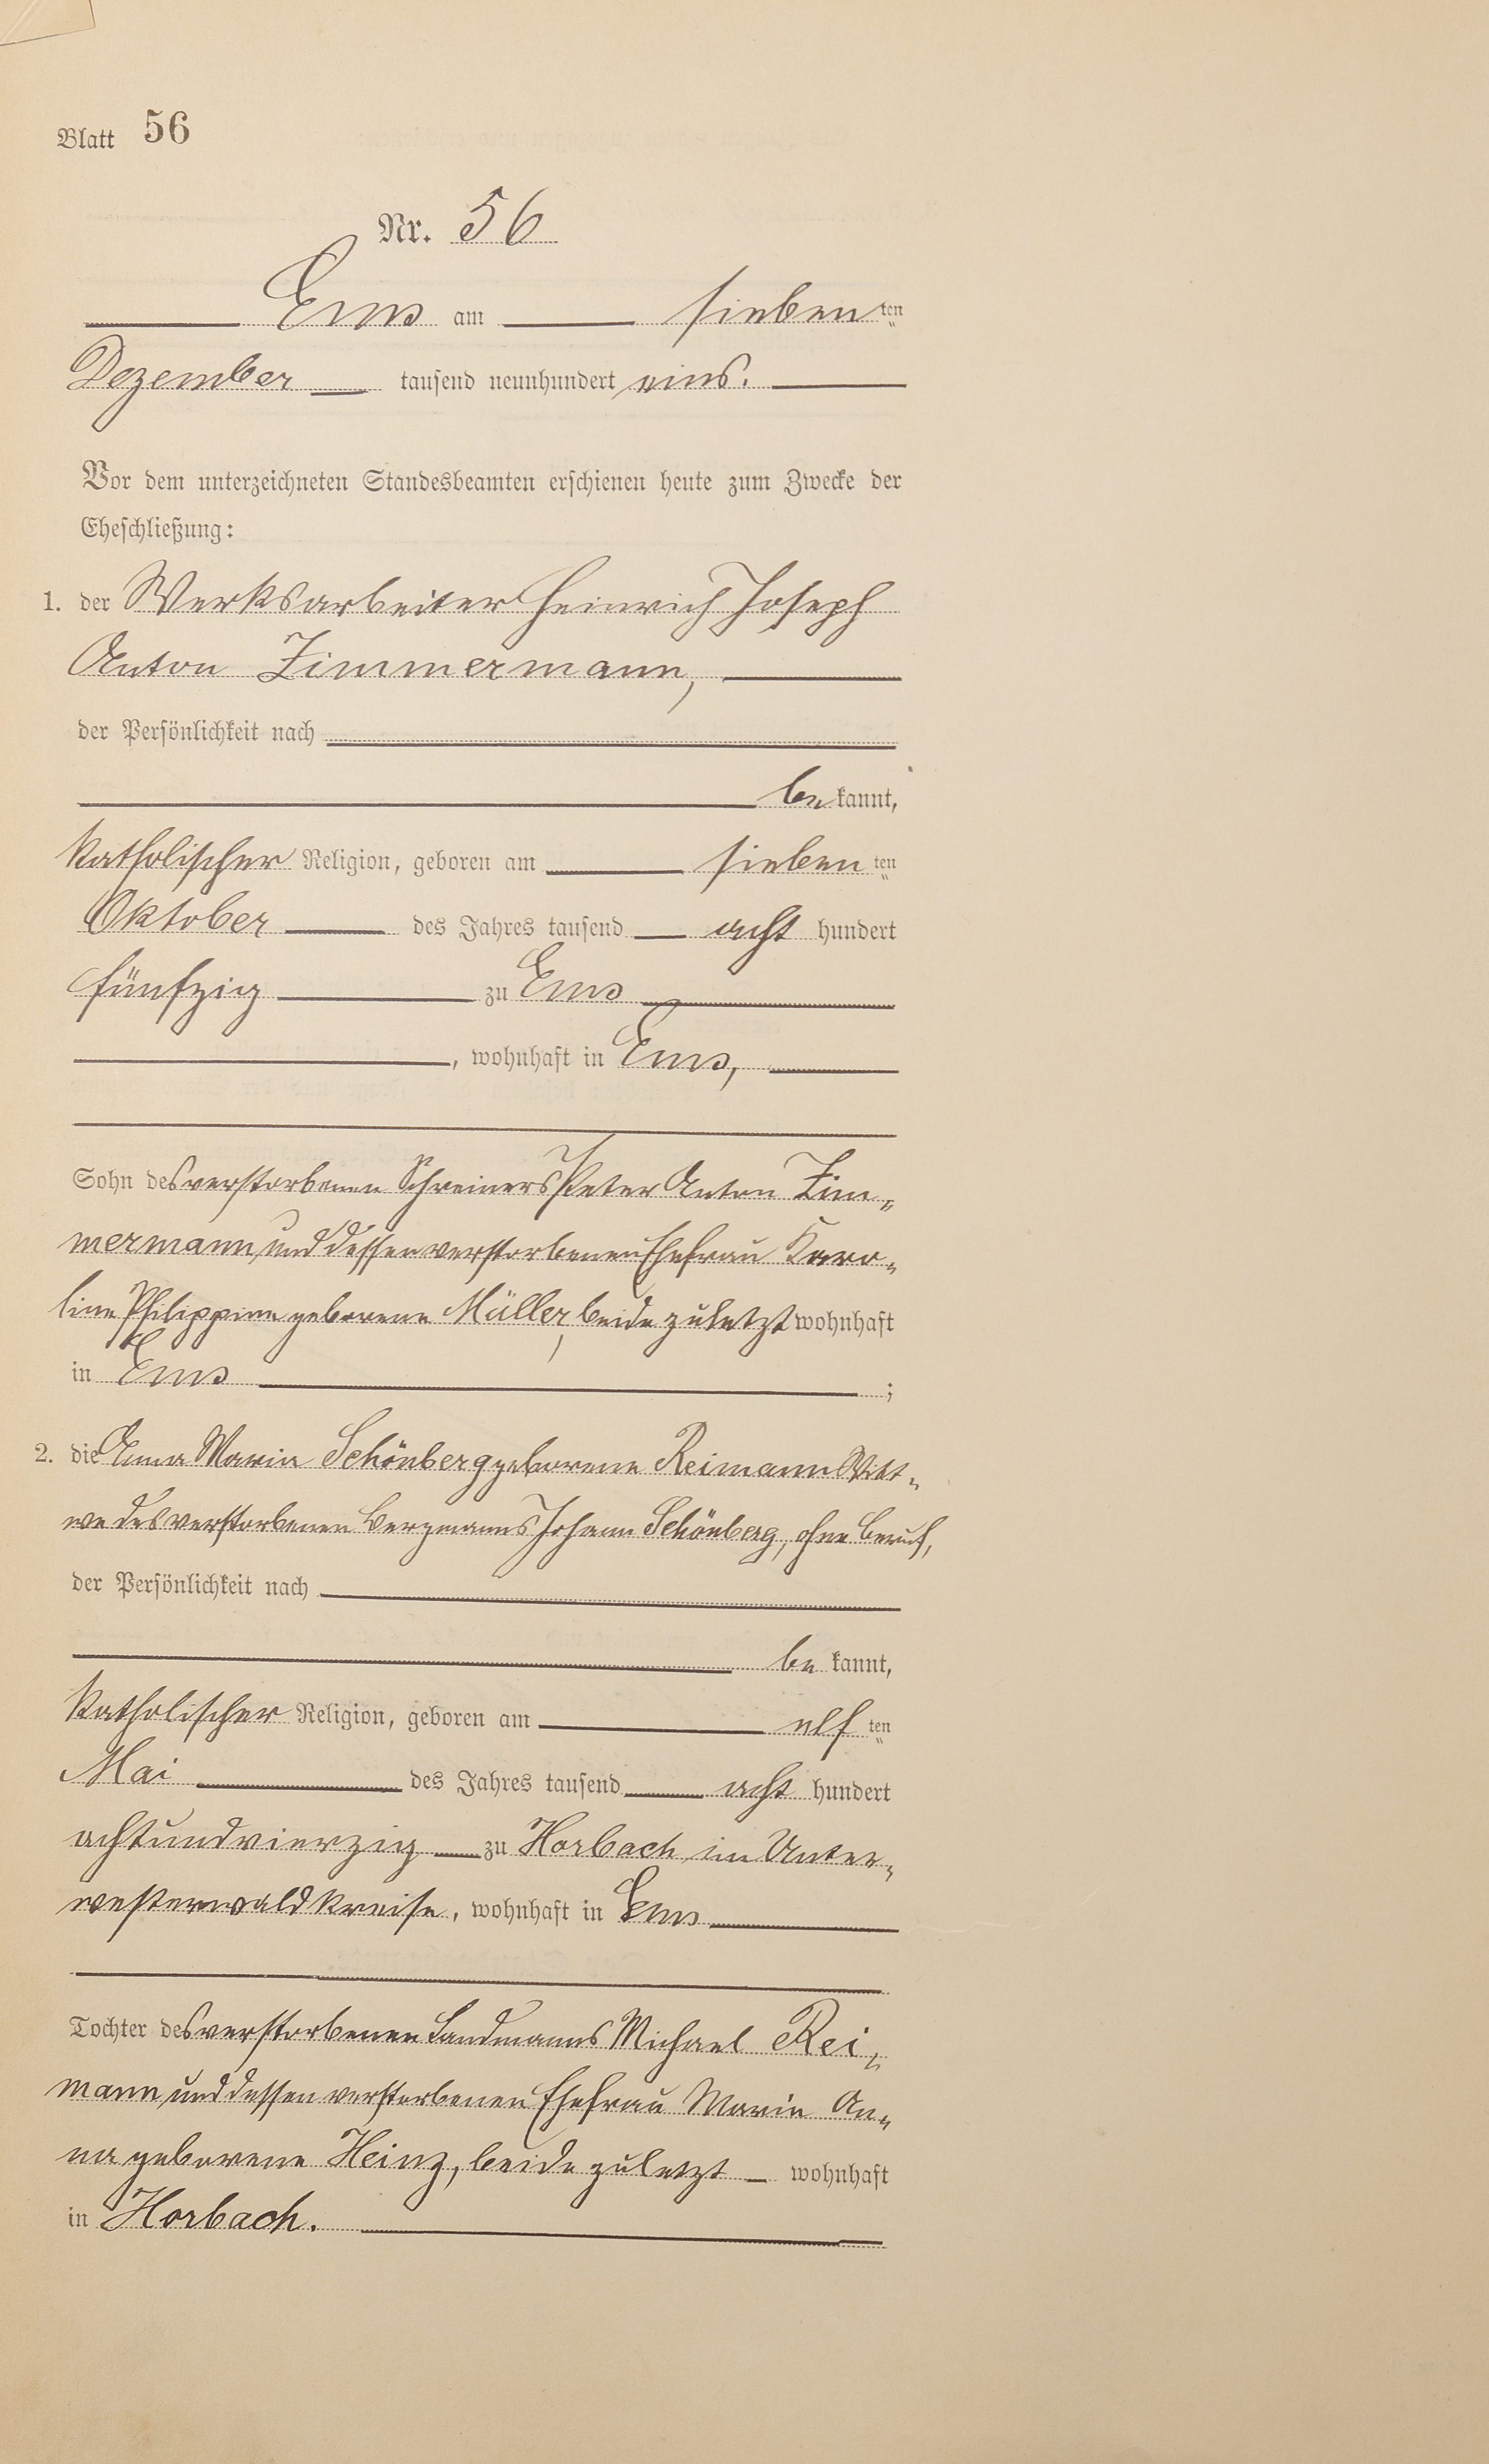 Blatt 56
Nr. 56
Ems am sieben ten
Dezember tausend neunhundert eins.
Vor dem unterzeichneten Standesbeamten erschienen heute zum Zwecke der
Eheschließung:
1. der Werksarbeiter Heinrich Joseph
Anton Zimmermann,
der Persönlichkeit nach
be kannt,
katholischer Religion, geboren am sieben ten
Oktober des Jahres tausend acht hundert
fünfzig zu Ems
, wohnhaft in Ems,
Sohn des verstorbenen Schreiners Peter Anton Zim„
mermann und dessen verstorbenen Ehefrau Karo„
line Philippine geborene Müller, beide zuletzt wohnhaft
in Ems ;
2. die Anna Maria Schönberg geborene Reimann Witt„
we des verstorbenen Bergmanns Johann Schönberg, ohne Beruf,
der Persönlichkeit nach
be kannt,
katholischer Religion, geboren am elf ten
Mai des Jahres tausend acht hundert
achtundvierzig zu Horbach im Unter„
westerwaldkreise, wohnhaft in Ems
Tochter des verstorbenen Landmanns Michael Rei„
mann und dessen verstorbenen Ehefrau Maria An„
na geborene Heinz, beide zuletzt wohnhaft
in Horbach.